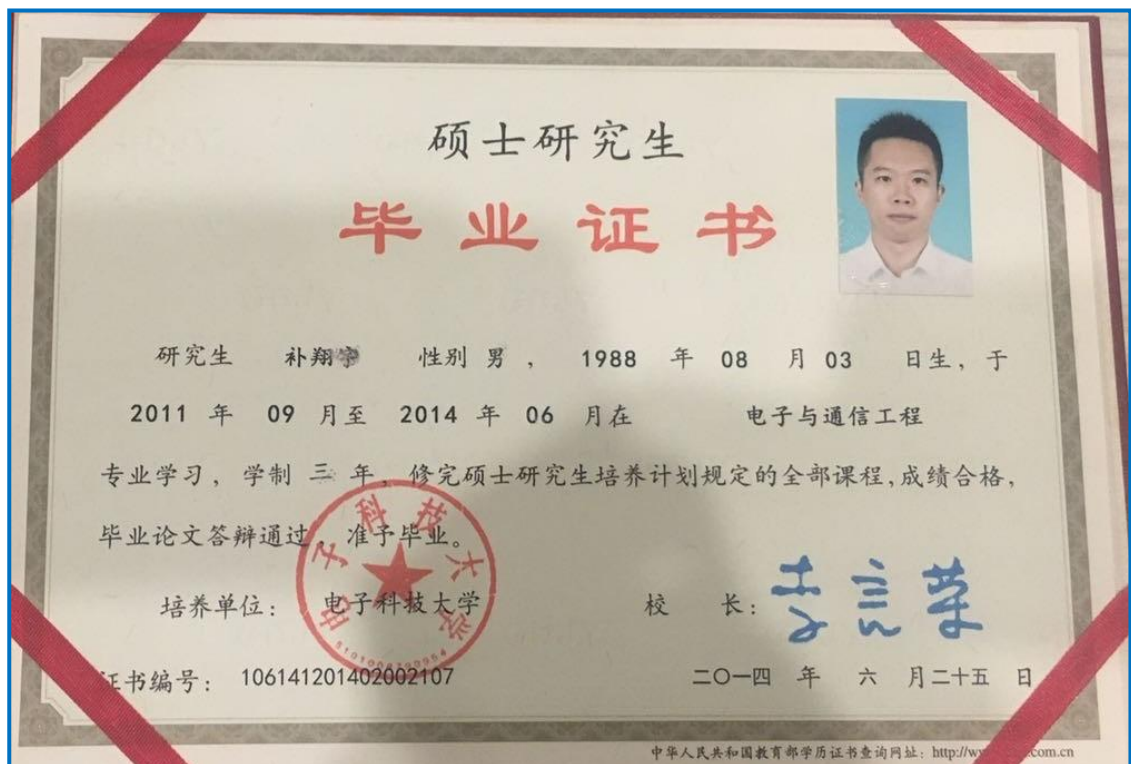 硕士研究生
毕业证书
研究生 补翔宇 性别 男 , 1988 年 08 月 03 日生, 于
2011 年 09 月至 2014 年 06 月在 电子与通信工程
专业学习, 学制 三 年, 修完硕士研究生培养计划规定的全部课程,成绩合格,
毕业论文答辩通过, 准予毕业。
电子科技大学
培养单位: 电子科技大学 校 长: 李言荣
证书编号: 106141201402002107 二〇一四 年 六 月二十五 日
中华人民共和国教育部学历证书查询网址: http://